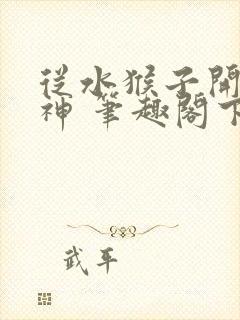 從水猴子開
神 筆趣閣下
武平